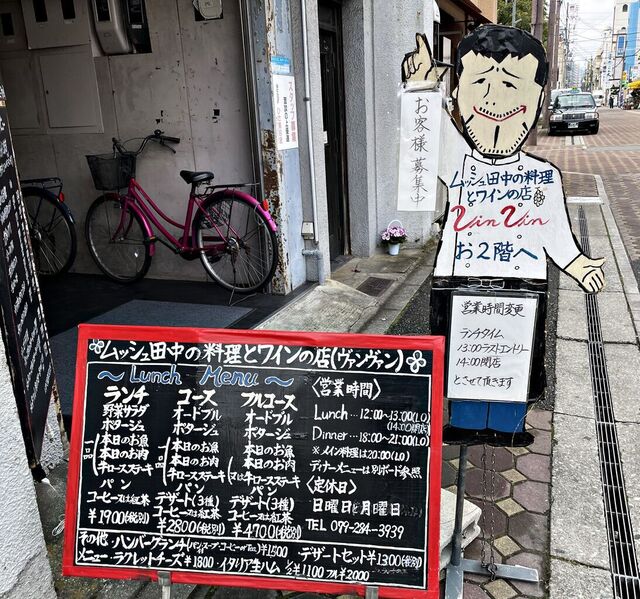 お客様募集中
ムッシュ田中の料理
とワインの店
Vin Vin
お2階へ
営業時間変更
ランチタイム
13:00ラストエントリー
14:00閉店
とさせて頂きます
ムッシュ田中の料理とワインの店(ヴァンヴァン)
～Lunch Menu～
ランチ
野菜サラダ
ポタージュ
本日のお魚
本日のお肉
牛ロースステーキ
パン
コーヒー又は紅茶
¥1900(税別)
コース
オードブル
ポタージュ
本日のお魚
本日のお肉
牛ロースステーキ
パン
デザート(3種)
コーヒー又は紅茶
¥2800(税別)
フルコース
オードブル
ポタージュ
本日のお魚
本日のお肉
又は牛ロースステーキ
パン
デザート(3種)
コーヒー又は紅茶
¥4700(税別)
〈営業時間〉
Lunch…12:00~13:00(LO)
(14:00閉店)
Dinner…18:00~21:00(LO)
※メイン料理は20:00(LO)
ディナーメニューは別ボード参照
〈定休日〉
日曜日と月曜日
TEL 099-284-3939
その他・ハンバーグランチ(パン・スープ・コーヒーorTea)¥1500 デザートセット¥1300(税別)
メニュー・ラクレットチーズ¥1800・イタリア生ハム 1/2¥1100 フル¥2000